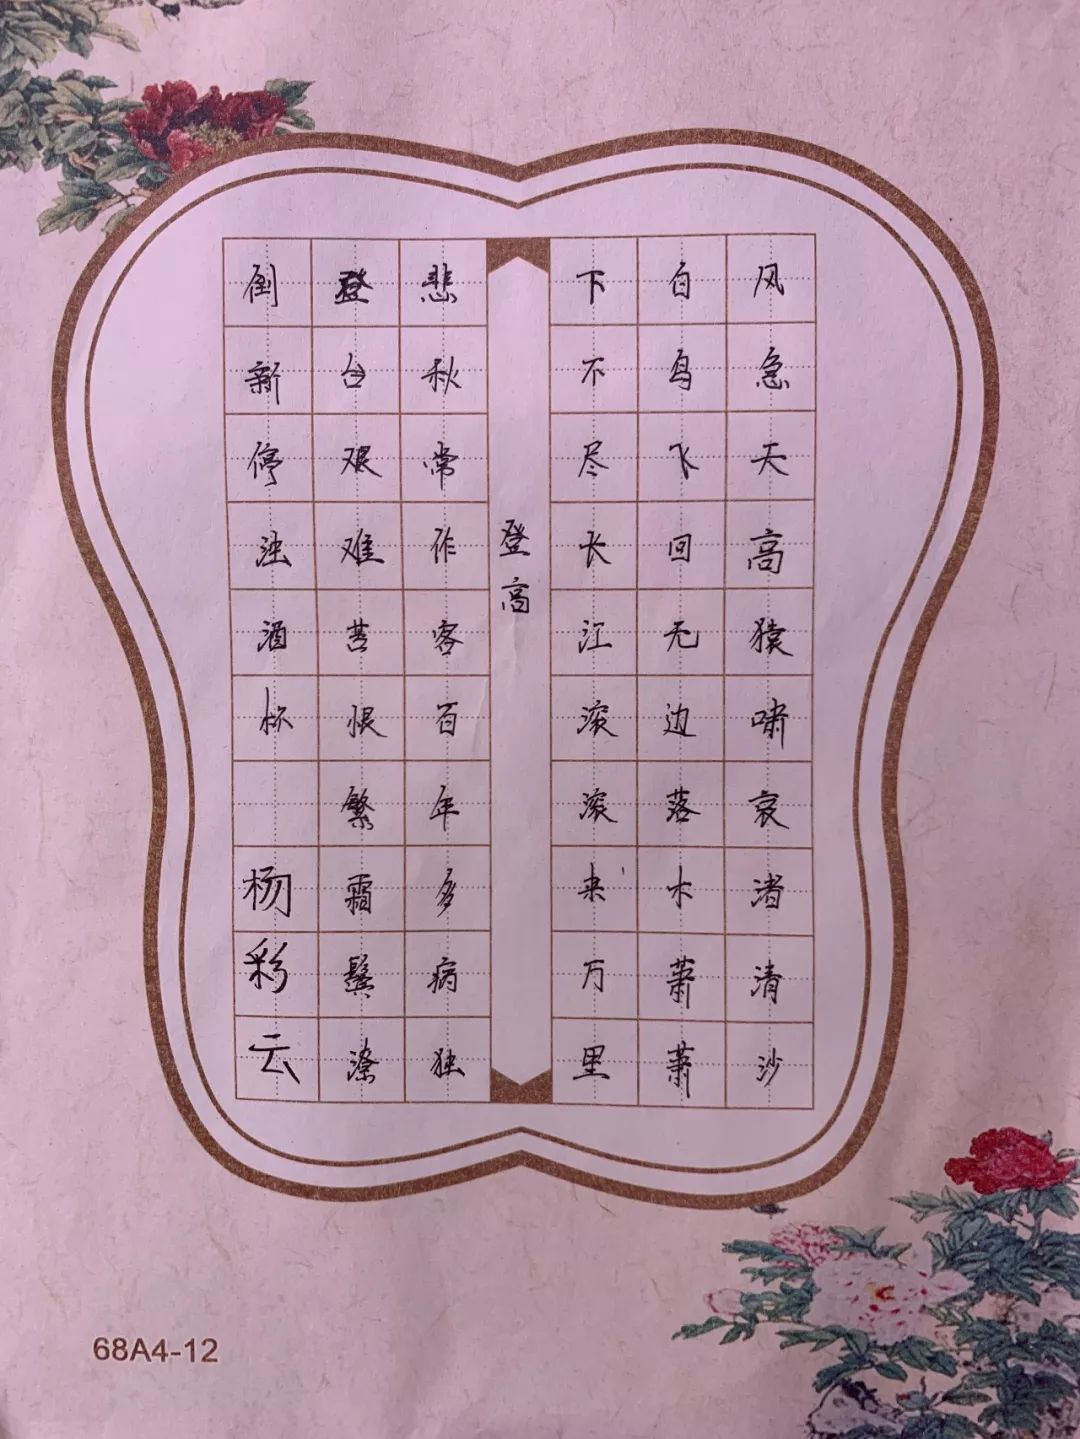 风急天高猿啸哀渚清沙
白鸟飞回无边落木萧萧
下不尽长江滚滚来万里
登高
悲秋常作客百年多病独
登台艰难苦恨繁霜鬓潦
倒新停浊酒杯 杨彩云
68A4-12